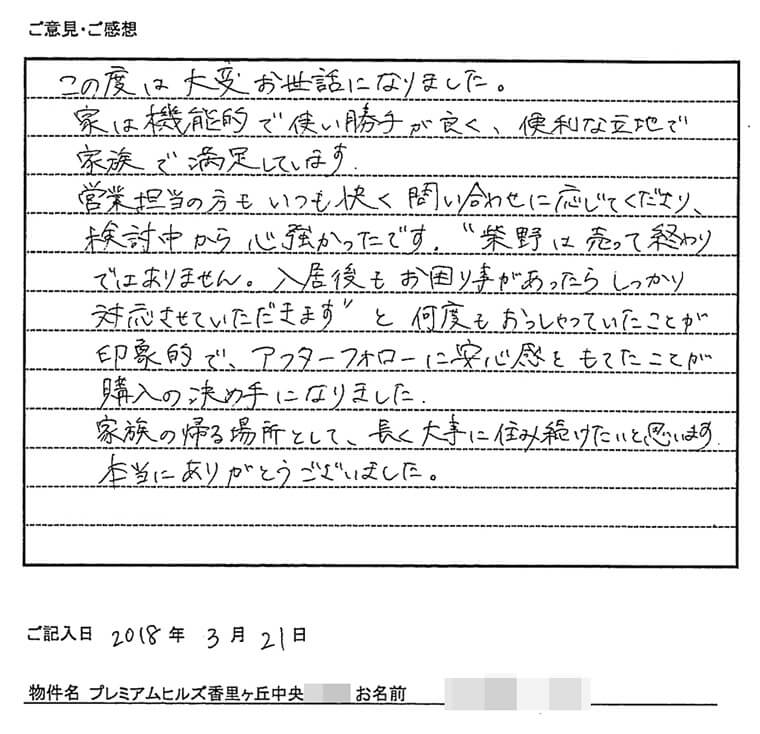 ご意見・ご感想
この度は大変お世話になりました。
家は機能的で使い勝手が良く、便利な立地で
家族で満足しています.
営業担当の方もいつも快く問い合わせに応じてくださり、
検討中から心強かったです. “柴野は売って終わり
ではありません。入居後もお困り事があったらしっかり
対応させていただきます”と何度もおっしゃっていたことが
印象的で、アフターフォローに安心感をもてたことが
購入の決め手になりました.
家族の帰る場所として、長く大事に住み続けたいと思います.
本当にありがとうございました。
ご記入日 2018年 3月 21日
物件名 プレミアムヒルズ香里ヶ丘中央 お名前